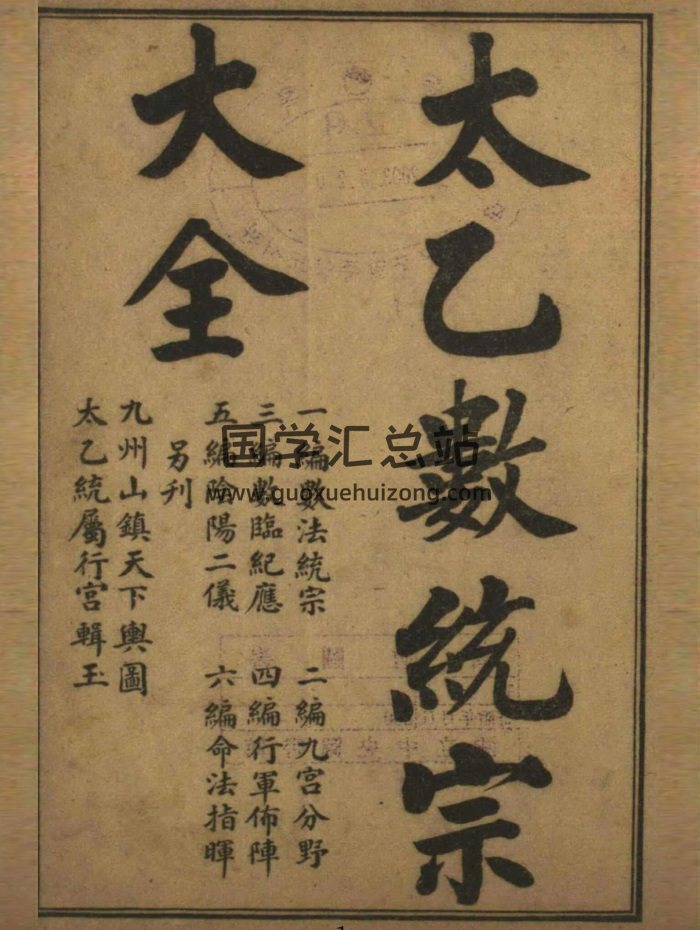 太乙數統宗
大全
一編數法統宗 二編九宮分野
三編數臨紀應 四編行軍佈陣
五編陰陽二儀 六編命法指暉
另刋
九州山鎮天下輿圖
太乙統屬行宮輯玉
国学汇总站
www.guoxuehuizong.com
1